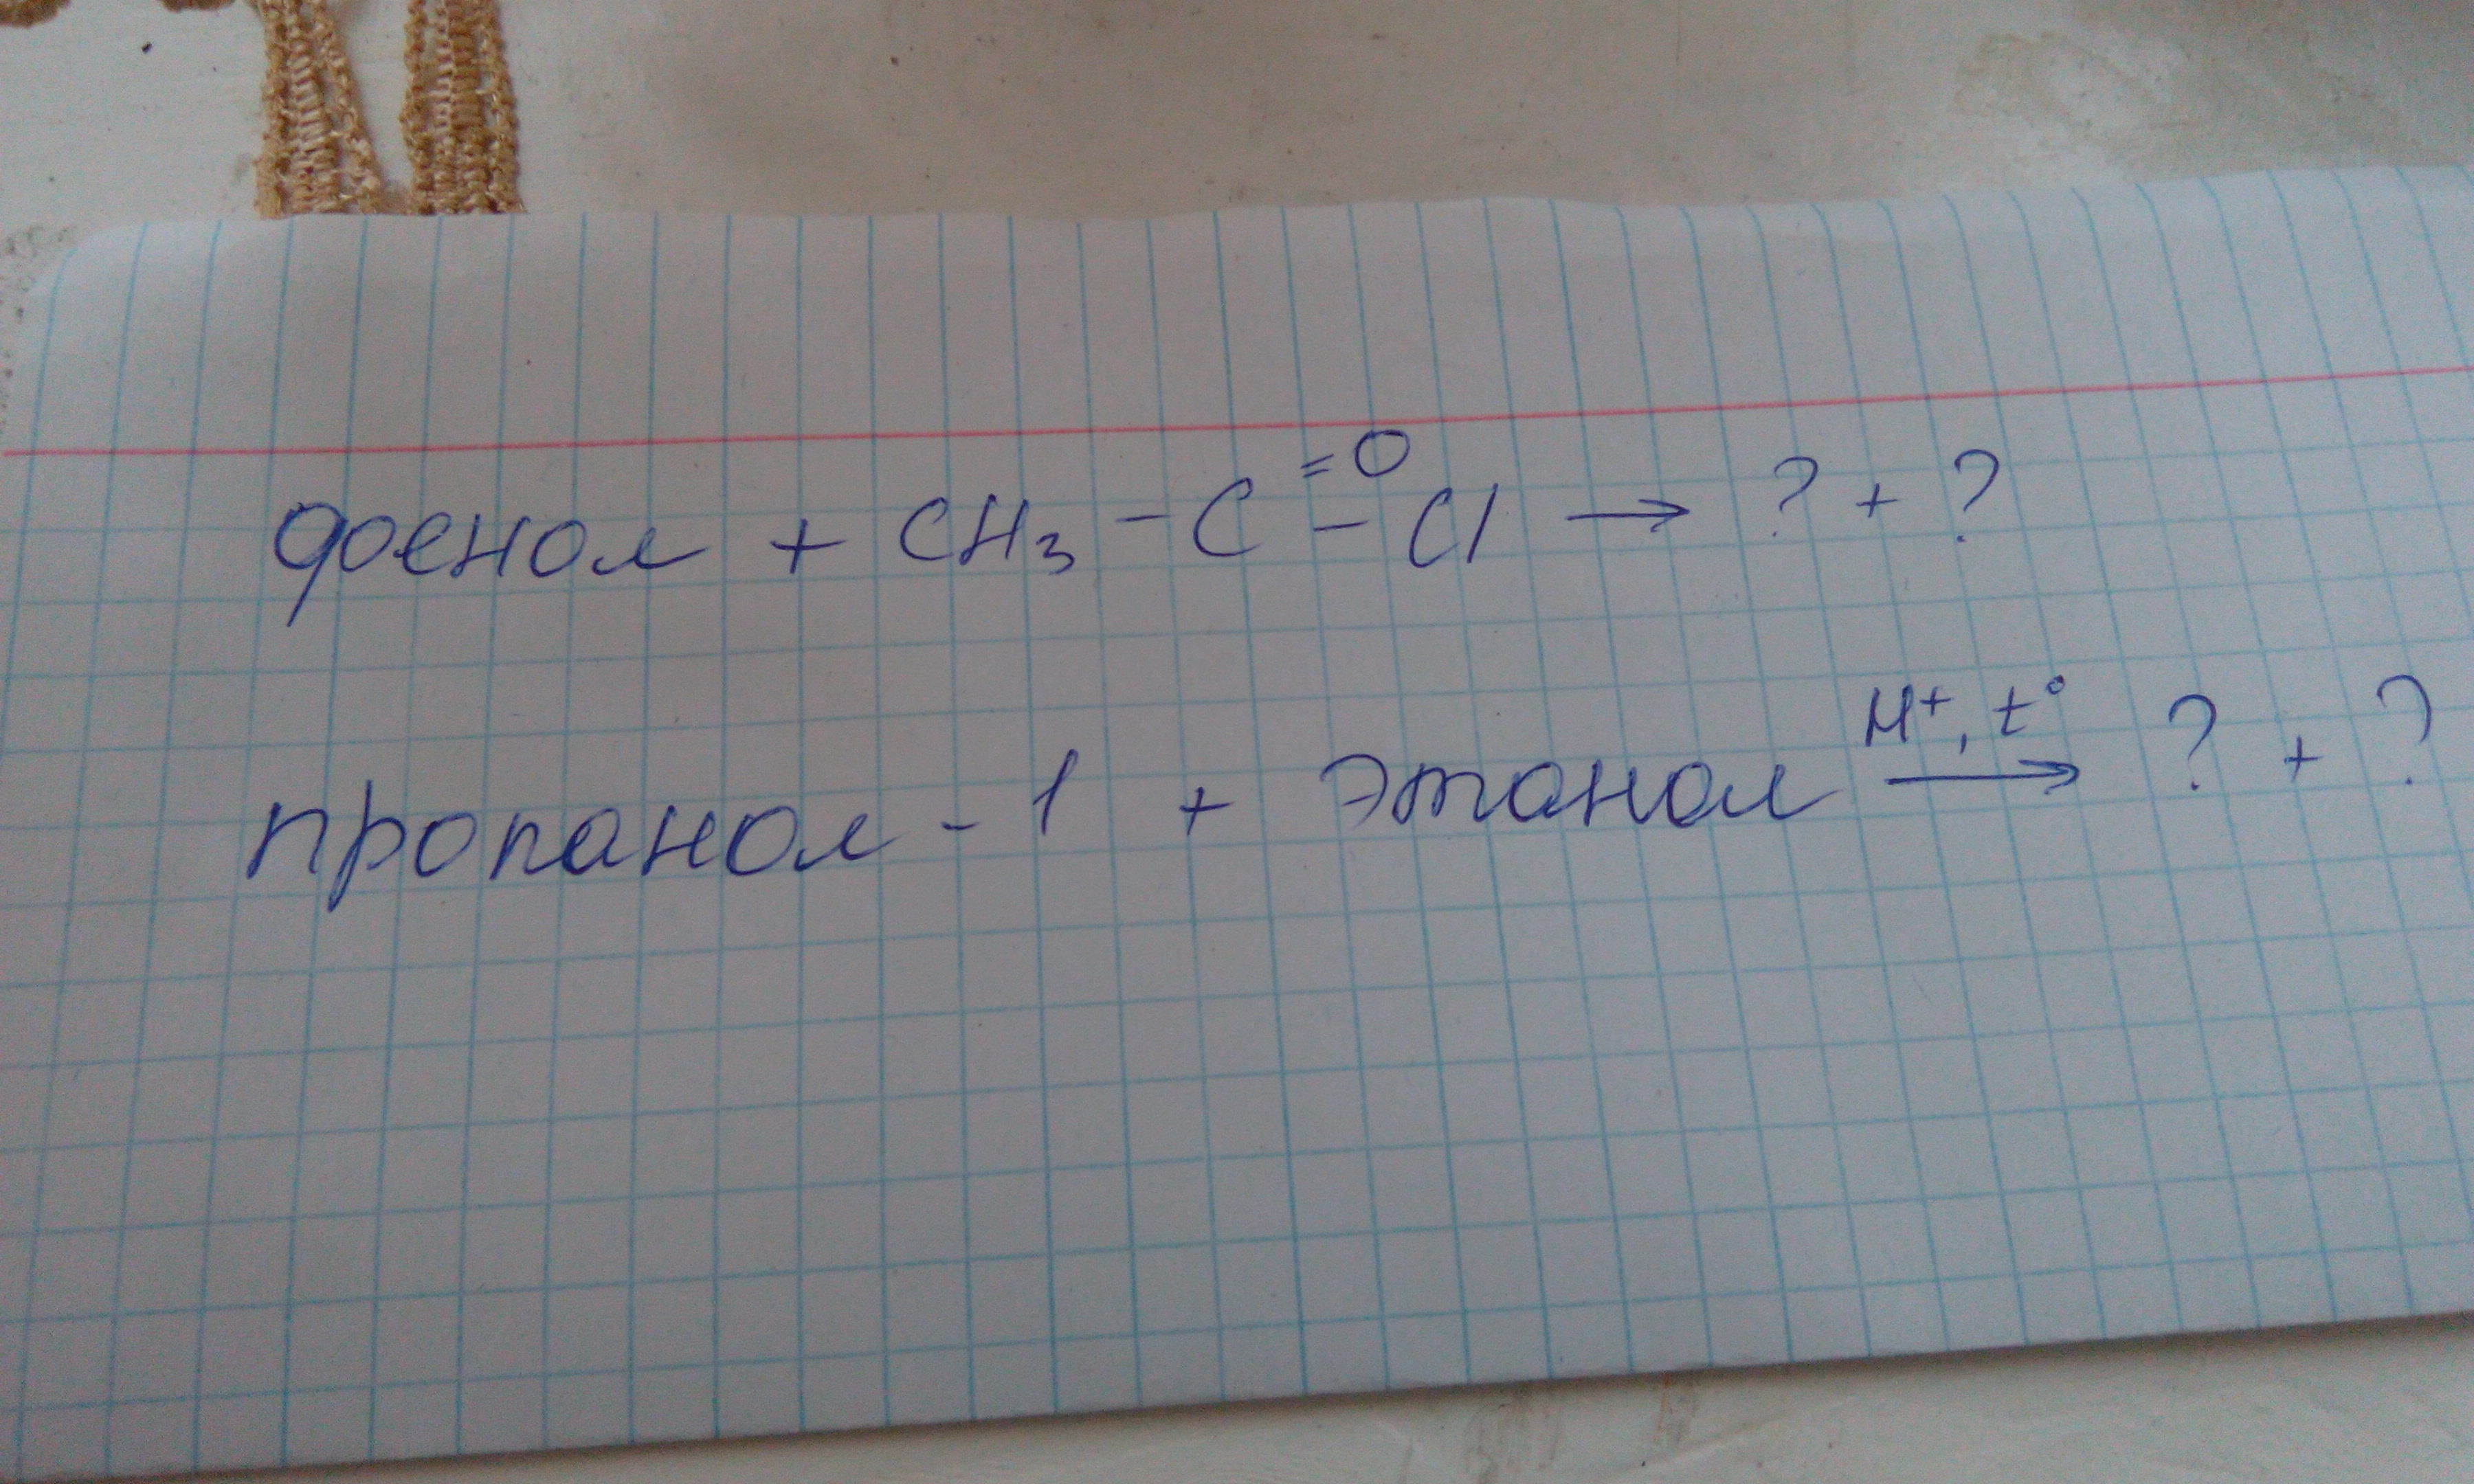 фенол + CH₃ - C =O - Cl → ? + ?
пропанол - 1 + этанол H⁺, t° → ? + ?